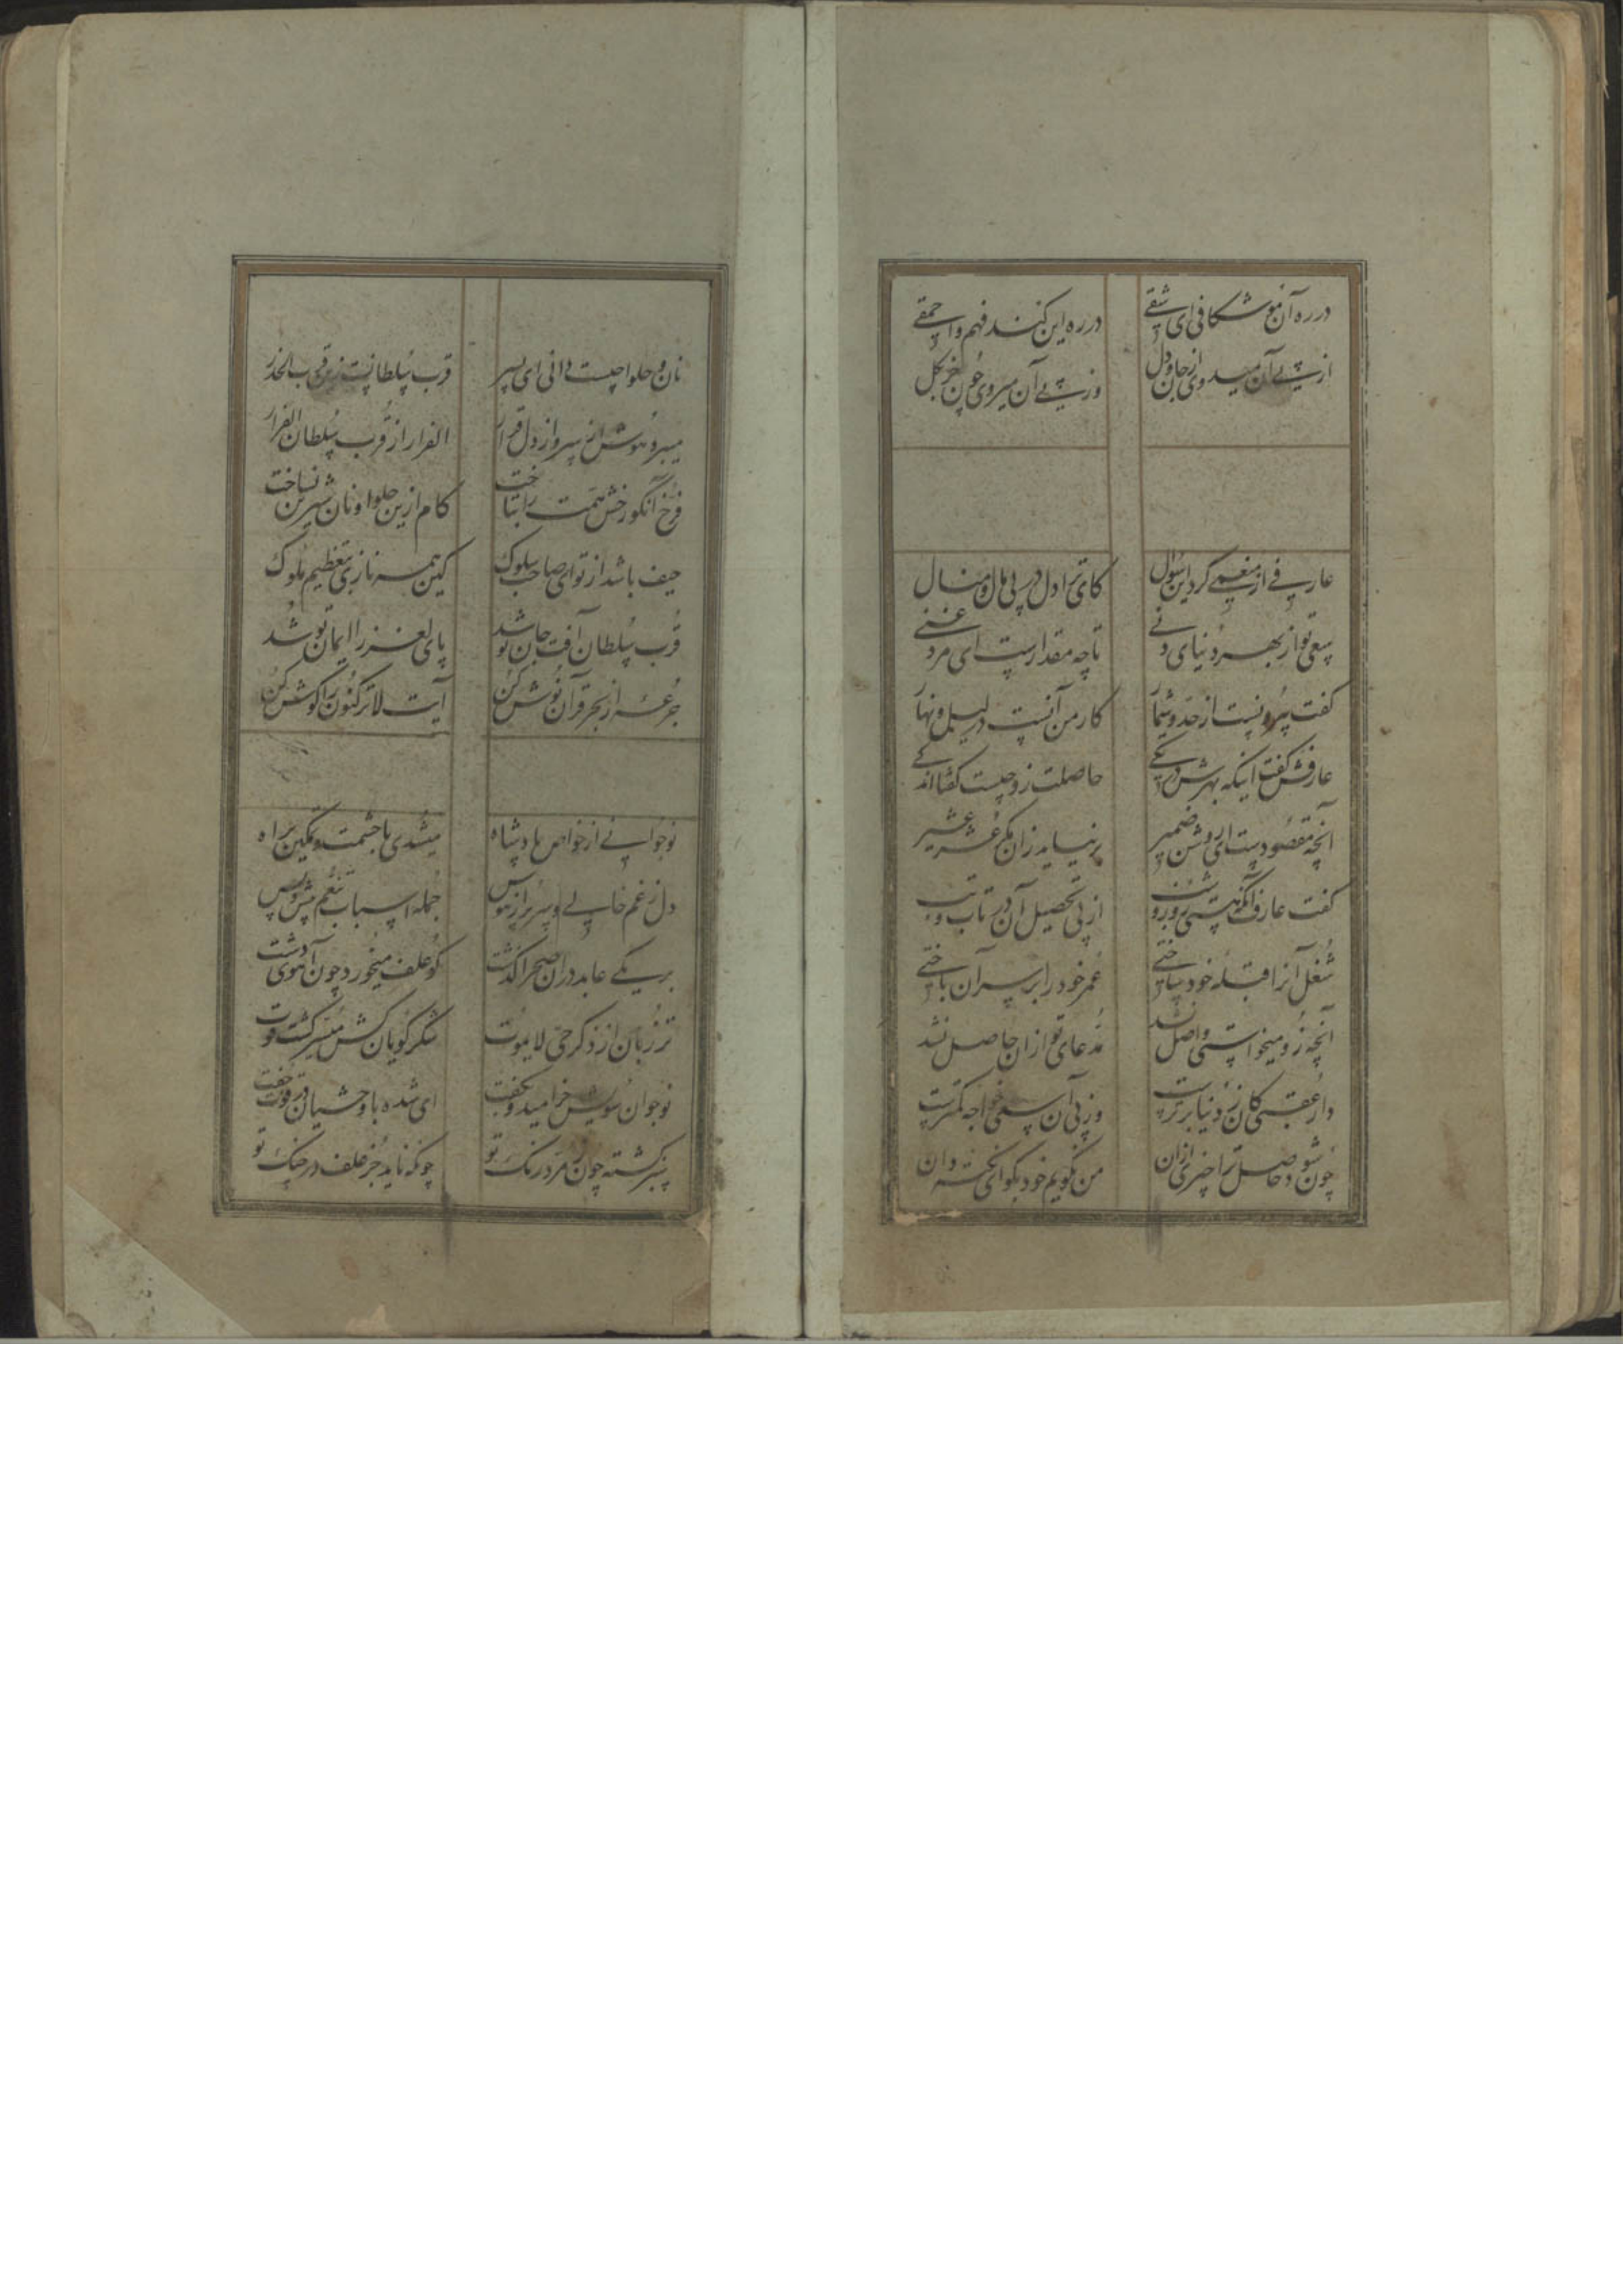 در ره آن موشکافی ای شقی
در ره این کند فهم و احمقی
از پی آن میدوی از جان و دل
وز پی آن میروی چون خر بگل
عارفی از منعمی کرد این سؤال
کای ترا دل در پی مال و منال
سعی تو از بهر دنیای دنی
تا چه مقدارست ای مرد غنی
گفت بیرونست از حد و شمار
کار من آنست در لیل و نهار
عارفش گفت اینکه بهرش در تکی
حاصلت زو چیست گفتا اندکی
آنچه مقصودست ای روشن ضمیر
بر نیاید زان مگر عشر عشیر
گفت عارف آنکه هستی روز و شب
از پی تحصیل آن در تاب و تب
شغل آنرا قبله خود ساختی
عمر خود را بر سر آن باختی
آنچه زو میخواستی واصل نشد
مدعای تو ازان حاصل نشد
دار عقبی کان ز دنیا برترست
وز پی آن سعی خواجه کمترست
چون شود حاصل ترا چیزی ازان
من نگویم خود بگو ای نکته دان
نان و حلوا چیست دانی ای پسر
قرب سلطانست زین قرب الحذر
میبرد هوش از سر و از دل قرار
الفرار از قرب سلطان الفرار
فرخ آنکو رخش همت را بتاخت
کام ازین حلوا و نان شیرین نساخت
حیف باشد از تو ای صاحب سلوک
کین همه نازی بتعظیم ملوک
قرب سلطان آفت جان تو شد
پای لغز راه ایمان تو شد
جرعه از بحر قرآن نوش کن
آیت لا ترکنوا را گوش کن
نوجوانی از خواص پادشاه
میشدی با حشمت و تمکین براه
دل ز غم خالی و سر پر از هوس
جمله اسباب تنعم پیش و پس
بر یکی عابد دران صحرا گذشت
کو علف میخورد چون آهوی دشت
تر زبان از ذکر حی لا یموت
شکر گویان کش میسر گشت قوت
نوجوان سویش خرامید و بگفت
ای شده با وحشیان در قوت جفت
سبز گشته چون زمرد رنگ تو
چونکه ناید جز علف در چنگ تو